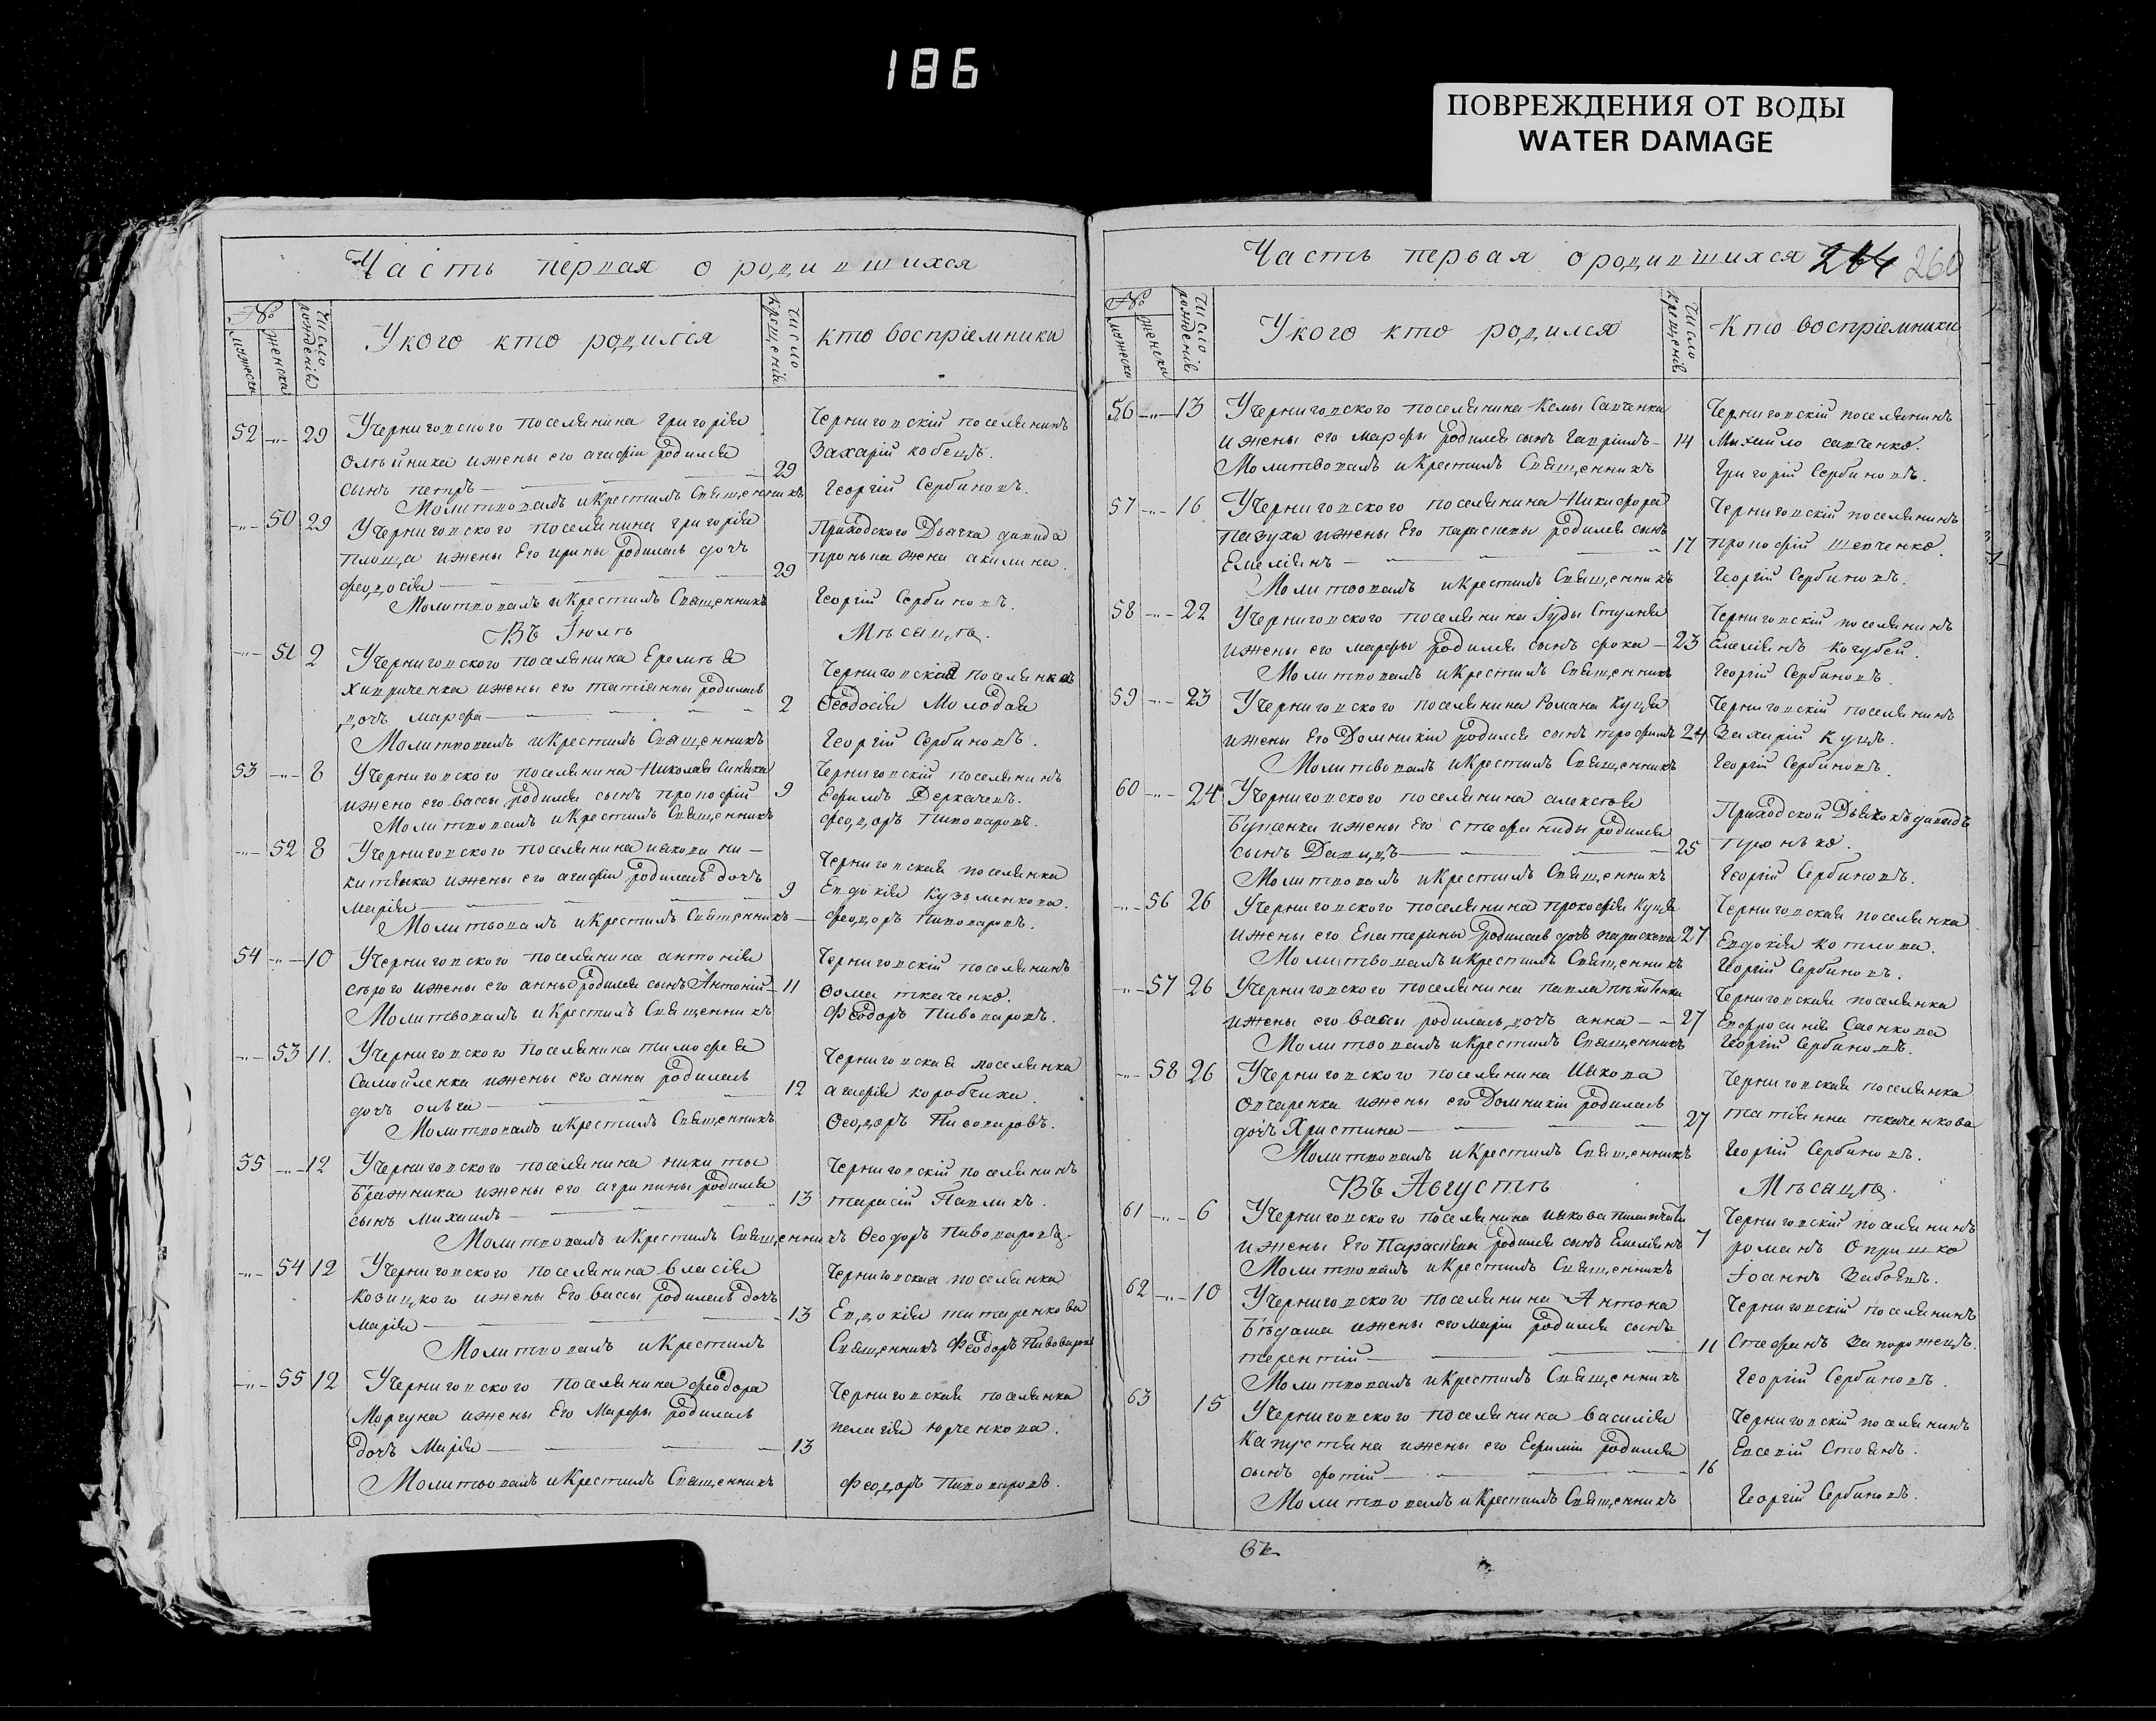 186
ПОВРЕЖДЕНИЯ ОТ ВОДЫ
WATER DAMAGE
Часть первая о родившихся
№
мужеска
женска
Число рожденія
У кого кто родился
Число крещенія
кто воспріемники
52 -"- 29 У Черниговского поселянина григорія
олѣйника и жены его агафіи родился
сынъ петръ 29
Молитвовалъ и Крестилъ Священникъ
Черниговскій поселянинъ
Захарій кобецъ.
Георгій Сербиновъ.
-"- 50 29 У Черниговского поселянина григорія
площа и жены Его ирины родилась дочъ
феодосія 29
Молитвовалъ и Крестилъ Священникъ
Приходского Дьячка давида
пронька жена акилина.
Георгій Сербиновъ.
Въ Іюлѣ Мѣсяцѣ.
-"- 51 2 У Черниговского поселянина Еремѣя
Хивриченка и жены его татіянны родилась
дочъ марфа 2
Молитвовалъ и Крестилъ Священникъ
Черниговская поселянка
Ѳеодосія Молодая
Георгій Сербиновъ.
53 -"- 8 У Черниговского поселянина Николая Синяка
и жены его вассы родился сынъ прокофій 9
Молитвовалъ и Крестилъ Священникъ
Черниговскій поселянинъ
Ефимъ Деркачевъ.
феодоръ Пивоваровъ.
-"- 52 8 У Черниговского поселянина иякова ни-
китяька и жены его агафіи родилась дочъ
марія 9
Молитвовалъ и Крестилъ Священникъ
Черниговская поселянка
Евдокія Кузьменкова.
феодоръ Пивоваровъ.
54 -"- 10 У Черниговского поселянина антонія
сѣрого и жены его анны родился сынъ Антоній 11
Молитвовалъ и Крестилъ Священникъ
Черниговскій поселянинъ
Ѳома ткаченко.
Феодоръ Пивоваровъ.
-"- 53 11. У Черниговского поселянина тимофея
Самойленка и жены его анны родилась
дочъ ольга 12
Молитвовалъ и Крестилъ Священникъ
Черниговская поселянка
агафія коробчиха.
Ѳеодоръ Пивоваровъ.
55 -"- 12 У Черниговского поселянина никиты
Бражника и жены его агрипины родился
сынъ михаилъ 13
Молитвовалъ и Крестилъ Священникъ Ѳеодоръ Пивоваровъ
Черниговскій поселянинъ
тарасій Павликъ.
-"- 54 12 У Черниговского поселянина власія
Козицкого и жены Его вассы родилась дочъ
марія 13
Молитвовалъ и Крестилъ
Черниговская поселянка
Евдокія титаренкова
Священникъ Феодоръ Пивоваровъ
-"- 55 12 У Черниговского поселянина феодора
Моргуна и жены Его Марфы родилась
дочъ Марія 13
Молитвовалъ и Крестилъ Священникъ
Черниговская поселянка
пелагія юрченкова.
Феодоръ Пивоваровъ.
Часть первая о родившихся 264 260
№
мужеска
женска
Число рожденія
У кого кто родился
Число крещенія
Кто воспріемники
56 -"- 13 У Черниговского поселянина Козмы Савченка
и жены его марфы родился сынъ Гавріилъ 14
Молитвовалъ и Крестилъ Священникъ
Черниговскій поселянинъ
Михайло савченко.
Григорій Сербиновъ.
57 -"- 16 У Черниговского поселянина Никифора
пазуха и жены Его параскевы родился сынъ
Емеліянъ 17
Молитвовалъ и Крестилъ Священникъ
Черниговскій поселянинъ
прокофій шевченко.
Георгій Сербиновъ.
58 -"- 22 У Черниговского поселянина Іуды Ступкы
и жены его марфы родился сынъ фока 23
Молитвовалъ и Крестилъ Священникъ
Черниговскій поселянинъ
Емеліянъ Кочубей.
Георгій Сербиновъ.
59 -"- 23 У Черниговского поселянина Романа Куцая
и жены Его Домникіи родился сынъ трофимъ 24
Молитвовалъ и Крестилъ Священникъ
Черниговскій поселянинъ
Захарій Куцъ.
Георгій Сербиновъ.
60 -"- 24 У Черниговского поселянина алексѣя
Буженка и жены Его стефаниды родился
сынъ Давидъ 25
Молитвовалъ и Крестилъ Священникъ
Приходской Дьячокъ давидъ
пронько.
Георгій Сербиновъ.
-"- 56 26 У Черниговского поселянина прокофія Куцая
и жены его Екатерины родилась дочъ параскева 27
Молитвовалъ и Крестилъ Священникъ
Черниговская поселянка
Евдокія котлова.
Георгій Сербиновъ.
-"- 57 26 У Черниговского поселянина павла
и жены его вассы родилась дочъ анна 27
Молитвовалъ и Крестилъ Священникъ
Черниговская поселянка
Евфросинія Саенкова
Георгій Сербиновъ.
-"- 58 26 У Черниговского поселянина Иякова
Овчаренка и жены его Домникіи родилась
дочъ Христина 27
Молитвовалъ и Крестилъ Священникъ
Черниговская поселянка
татіянна ткаченкова
Георгій Сербиновъ.
Въ Августѣ Мѣсяцѣ.
61 -"- 6 У Черниговского поселянина иякова
и жены Его Параскевы родился сынъ Емеліянъ 7
Молитвовалъ и Крестилъ Священникъ
Черниговскій поселянинъ
романъ Опришко
Іоаннъ Забоевъ.
62 -"- 10 У Черниговского поселянина Антона
Бѣдаша и жены его маріи родился сынъ
терентій 11
Молитвовалъ и Крестилъ Священникъ
Черниговскій поселянинъ
Стефанъ Запорожецъ.
Георгій Сербиновъ.
63 15 У Черниговского поселянина василія
Капустяна и жены его Евфиміи родился
сынъ фотій 16
Молитвовалъ и Крестилъ Священникъ
Черниговскій поселянинъ
Евсевій Стоянъ.
Георгій Сербиновъ.